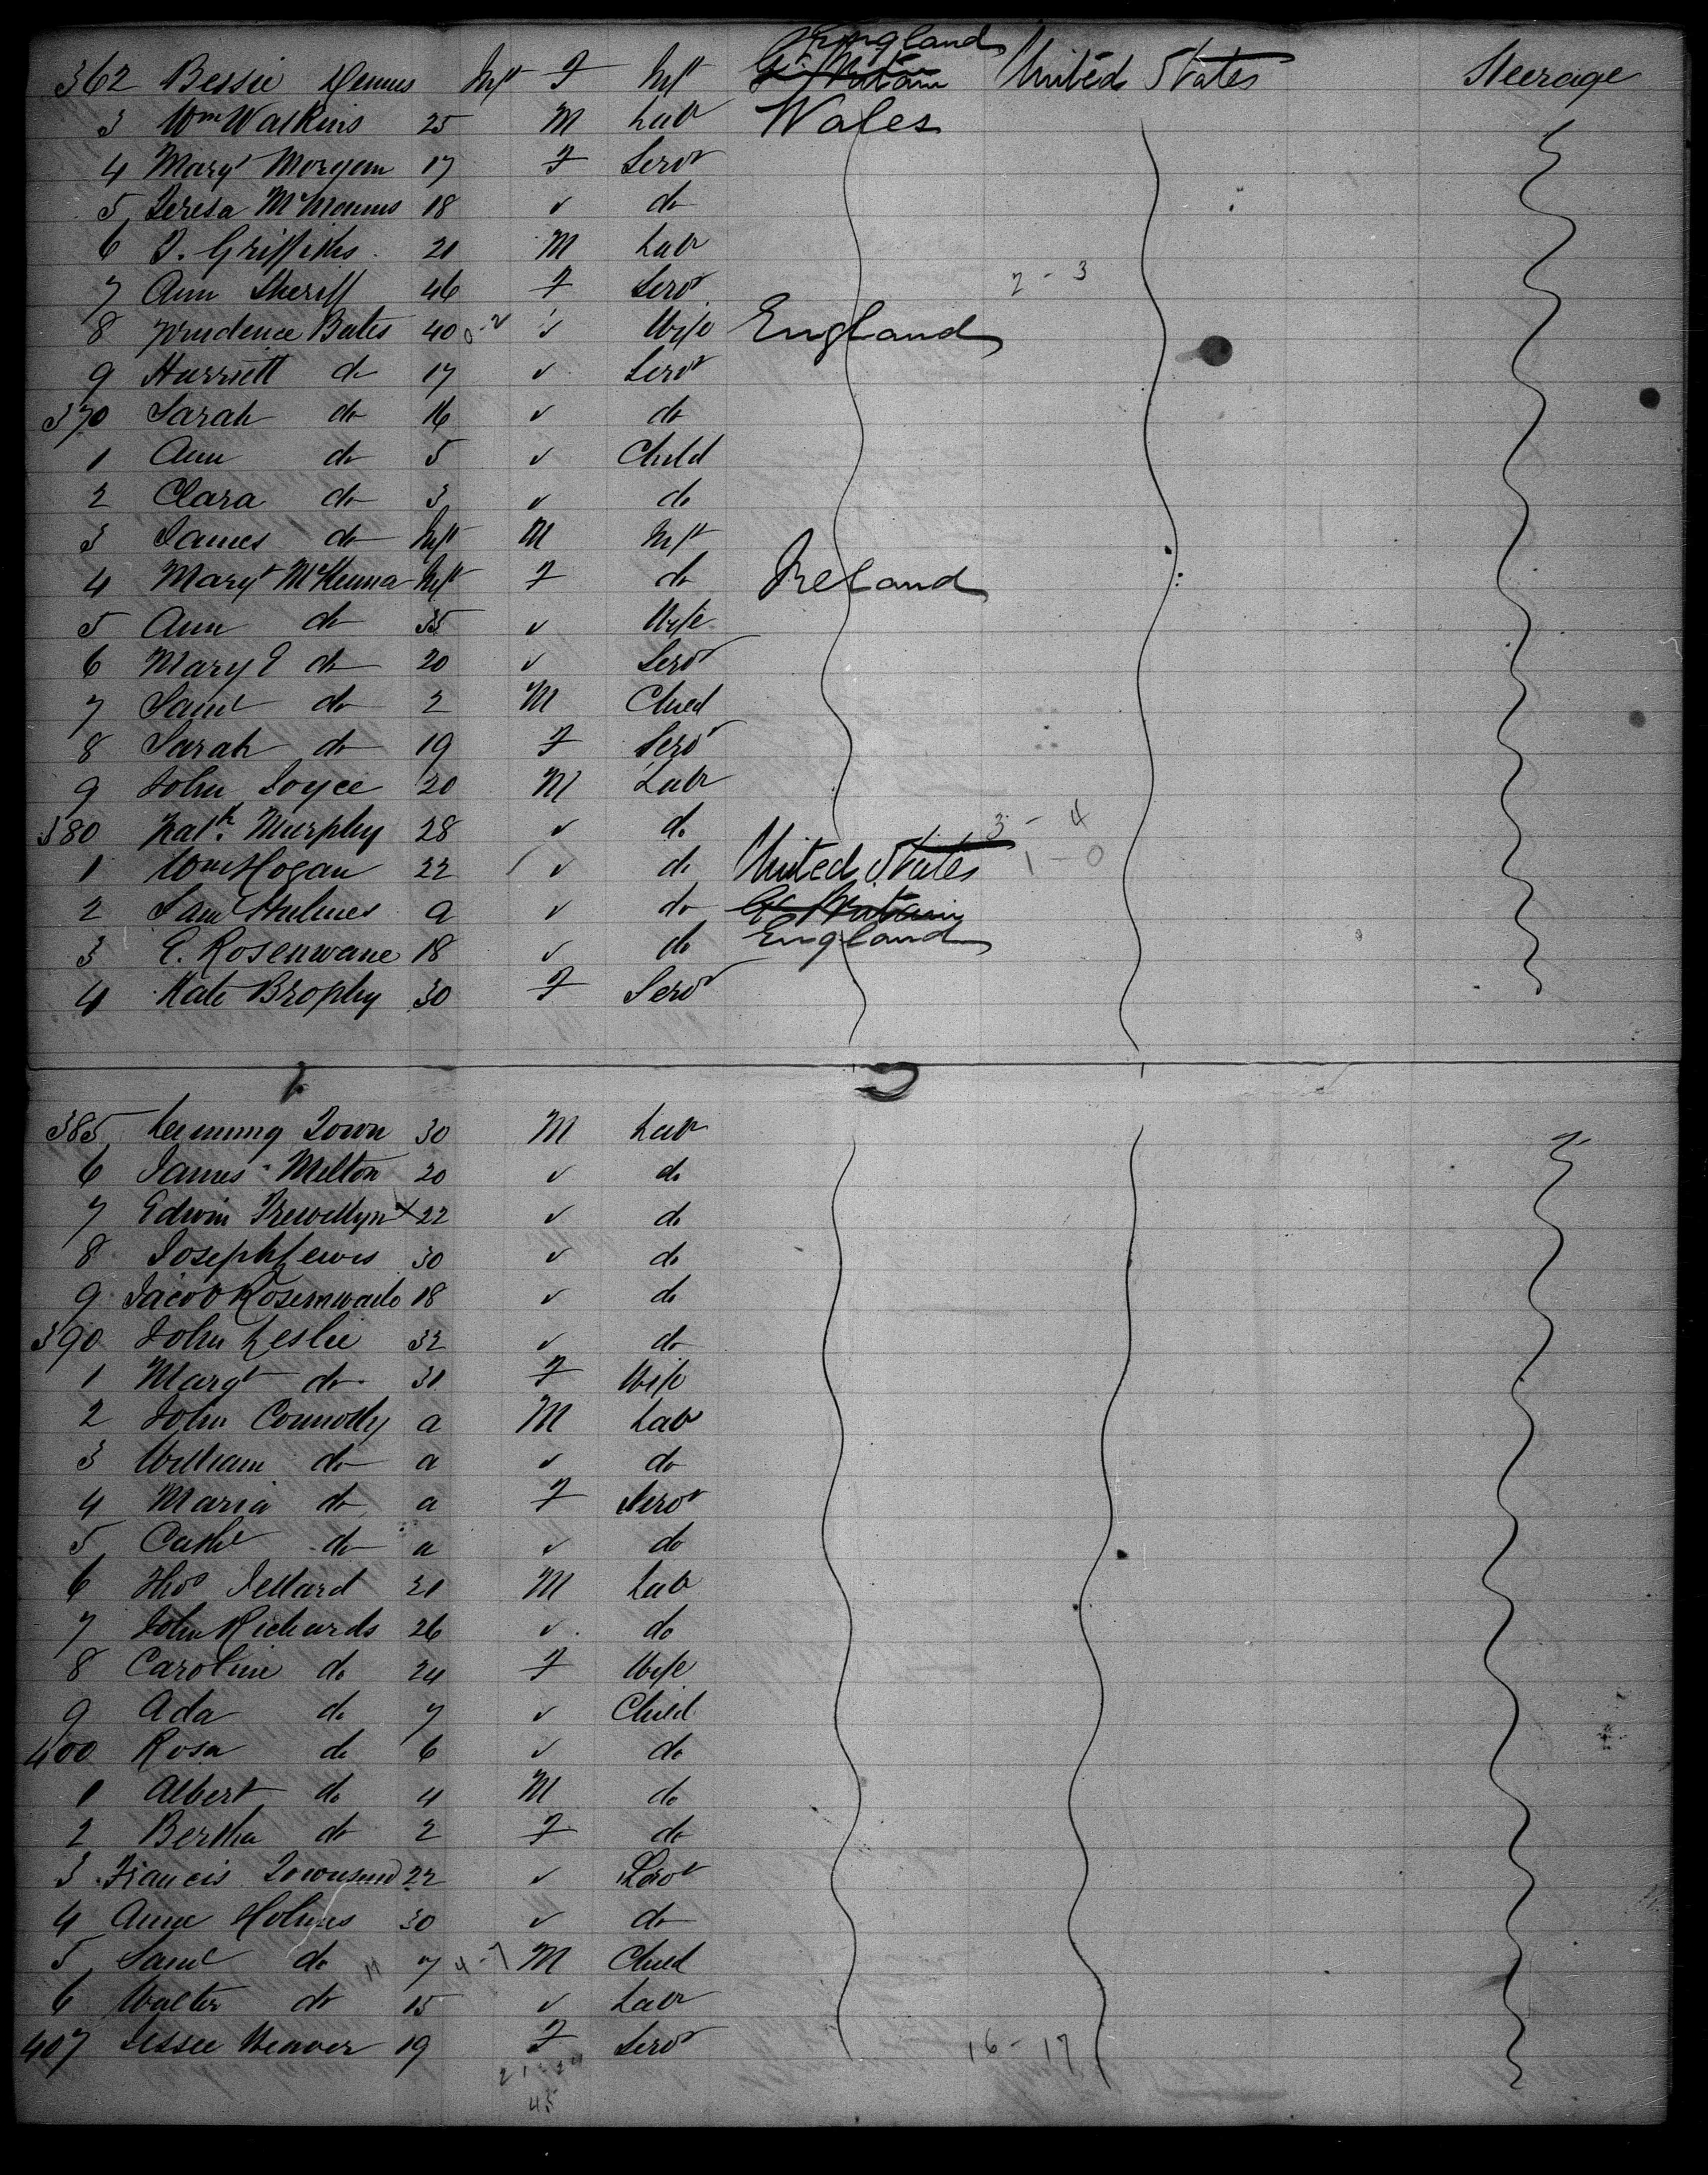 England
362 Bessie Dennis Inft F Inft Gt Britain United States Steerage
3 Wm Watkins 25 M Labr Wales
4 Margt Morgan 17 F Servt
5 Teresa McManus 18 ✓ do
6 D. Griffiths 21 M Labr
7 Ann Sheriff 46 F Servt 2 - 3
8 Prudence Bates 40 0-2 ✓ Wife England
9 Harriett do 17 ✓ Servt
370 Sarah do 16 ✓ do
1 Ann do 5 ✓ Child
2 Clara do 3 ✓ do
3 James do Inft M Inft
4 Margt McKenna Inft F do Ireland
5 Ann do 35 ✓ Wife
6 Mary E do 20 ✓ Servt
7 Saml do 2 M Child
8 Sarah do 19 F Servt
9 John Joyce 20 M Labr
380 Patk. Murphy 28 ✓ do 3 - 4
1 Wm Hogan 22 / ✓ do United States 1 - 0
2 Saml Hulmes a ✓ do Gt Britain
3 E. Rosenwane 18 ✓ do England
4 Kate Brophy 30 F Servt
385 Town 30 M Labr
6 James Melton 20 ✓ do
7 Edwin Trewellyn x 22 ✓ do
8 Joseph Lewis 30 ✓ do
9 Jacob 18 ✓ do
390 John Leslie 32 ✓ do
1 Margt do 31 F Wife
2 John Connolly a M Labr
3 William do a ✓ do
4 Maria do a F Servt
5 Cathe do a ✓ do
6 Thos Jellard 21 M Labr
7 John Richards 26 ✓ do
8 Caroline do 24 F Wife
9 Ada do 7 ✓ Child
400 Rosa do 6 ✓ do
1 Albert do 4 M do
2 Bertha do 2 F do
3 Francis Townsend 22 ✓ Servt
4 Anne Holmes 30 ✓ do
5 Saml do 11 7 4-7 M Child
6 Walter do 15 ✓ Labr
407 Jessee Weaver 19 F Servt 16 - 17
21 - 24
45